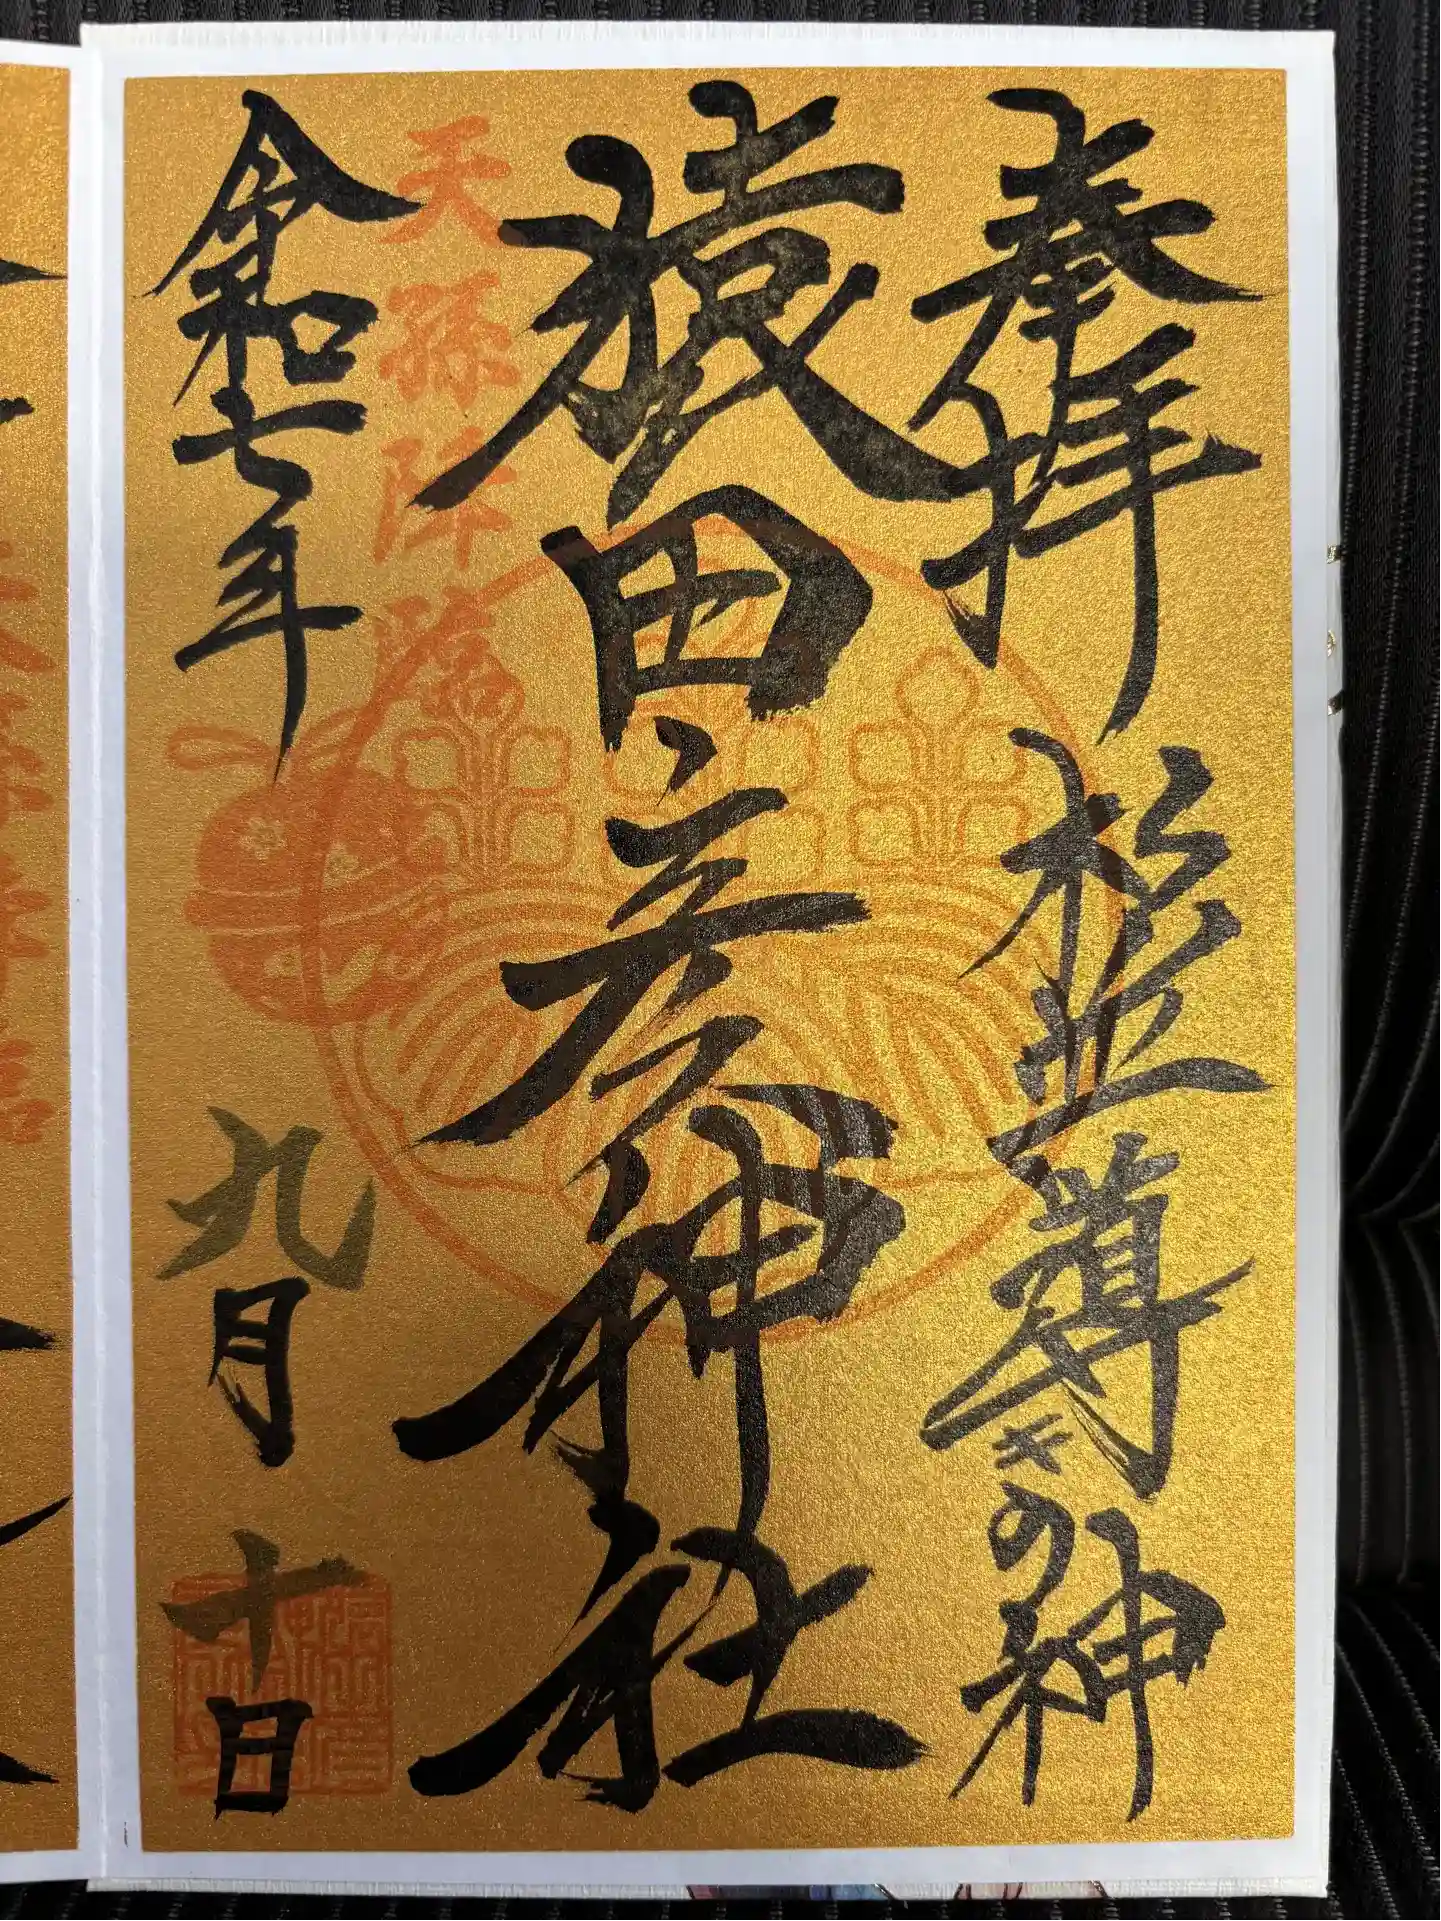 奉拝 杉並導きの神
猿田彦神社
天孫降臨
令和七年 九月 十日